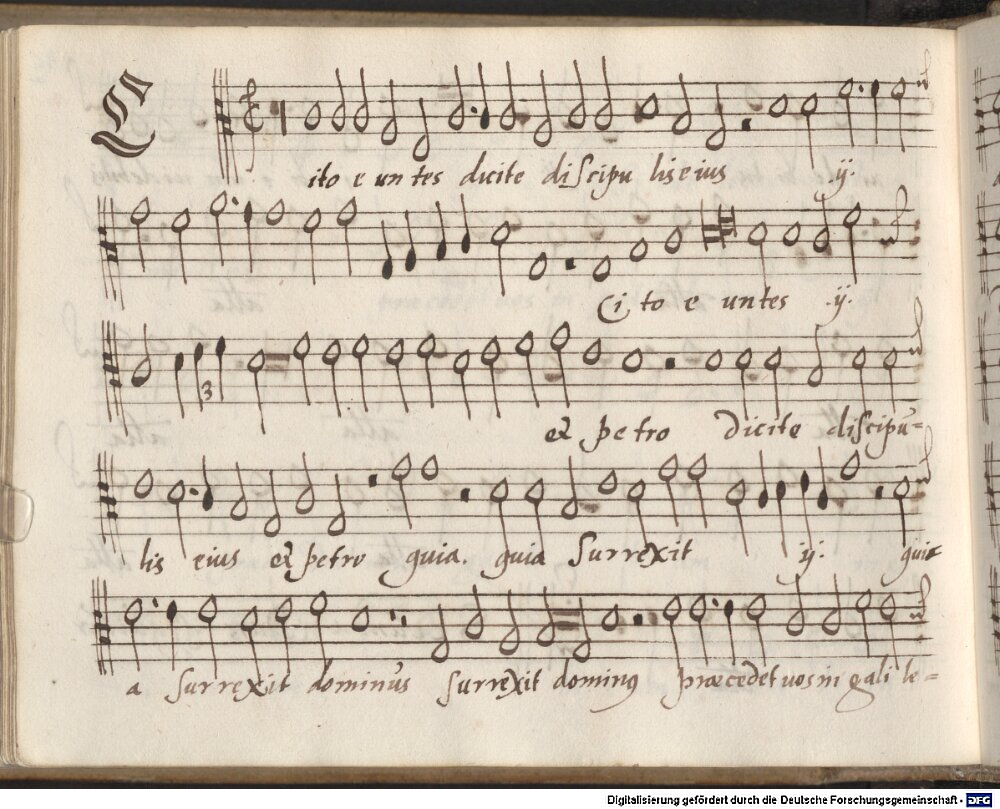 Cito e un tes dicite discipu lis eius ij.
Ci to e un tes ij.
et petro Dicite discipu=
lis eius et petro quia. quia Surrexit ij. quia
a Surrexit dominus Surrexit dominus præcedet uos ni gali le=
Digitalisierung gefördert durch die Deutsche Forschungsgemeinschaft - DFG